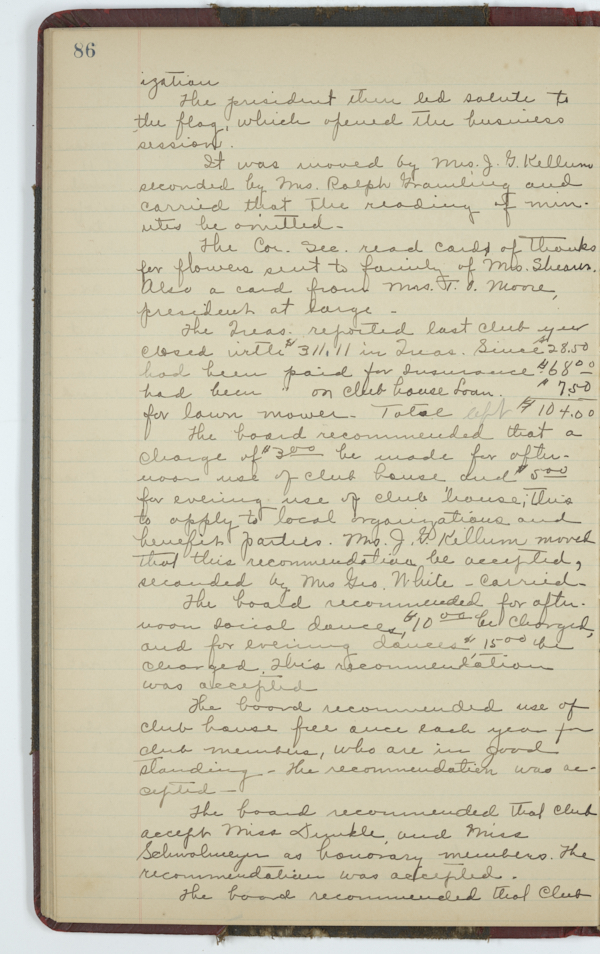 86
ization
The president then led salute to
the flag, which opened the business
session.
It was moved by Mrs. J. G. Kellum
seconded by Mrs. Ralph Gramling and
carried that the reading of min-
utes be omitted -
The Cor. Sec. read cards of thanks
for flowers sent to family of Mrs. Shears.
Also a card from Mrs. T. Moore,
president at large -
The Treas. reported last club year
closed with $311.11 in Treas. Since $28.50
had been paid for Insurance $68.00
had been " on club house loan. $7.50
for lawn mower - Total left $104.00
The board recommended that a
charge of $3.00 be made for after-
noon use of club house and $5.00
for evening use of club house, this
to apply to local organizations and
benefit parties. Mrs. J. G. Kellum moved
that this recommendation be accepted,
seconded by Mrs Geo. White - carried -
The board recommended for after-
noon social dances, $10.00 be charged,
and for evening dances, $15.00 be
charged. This recommendation
was accepted
The board recommended use of
club house free once each year for
club members, who are in good
standing - The recommendation was ac-
cepted -
The board recommended that club
accept Miss Dunkle and Miss
Schwalmeyer as honorary members. The
recommendation was accepted.
The board recommended that Club